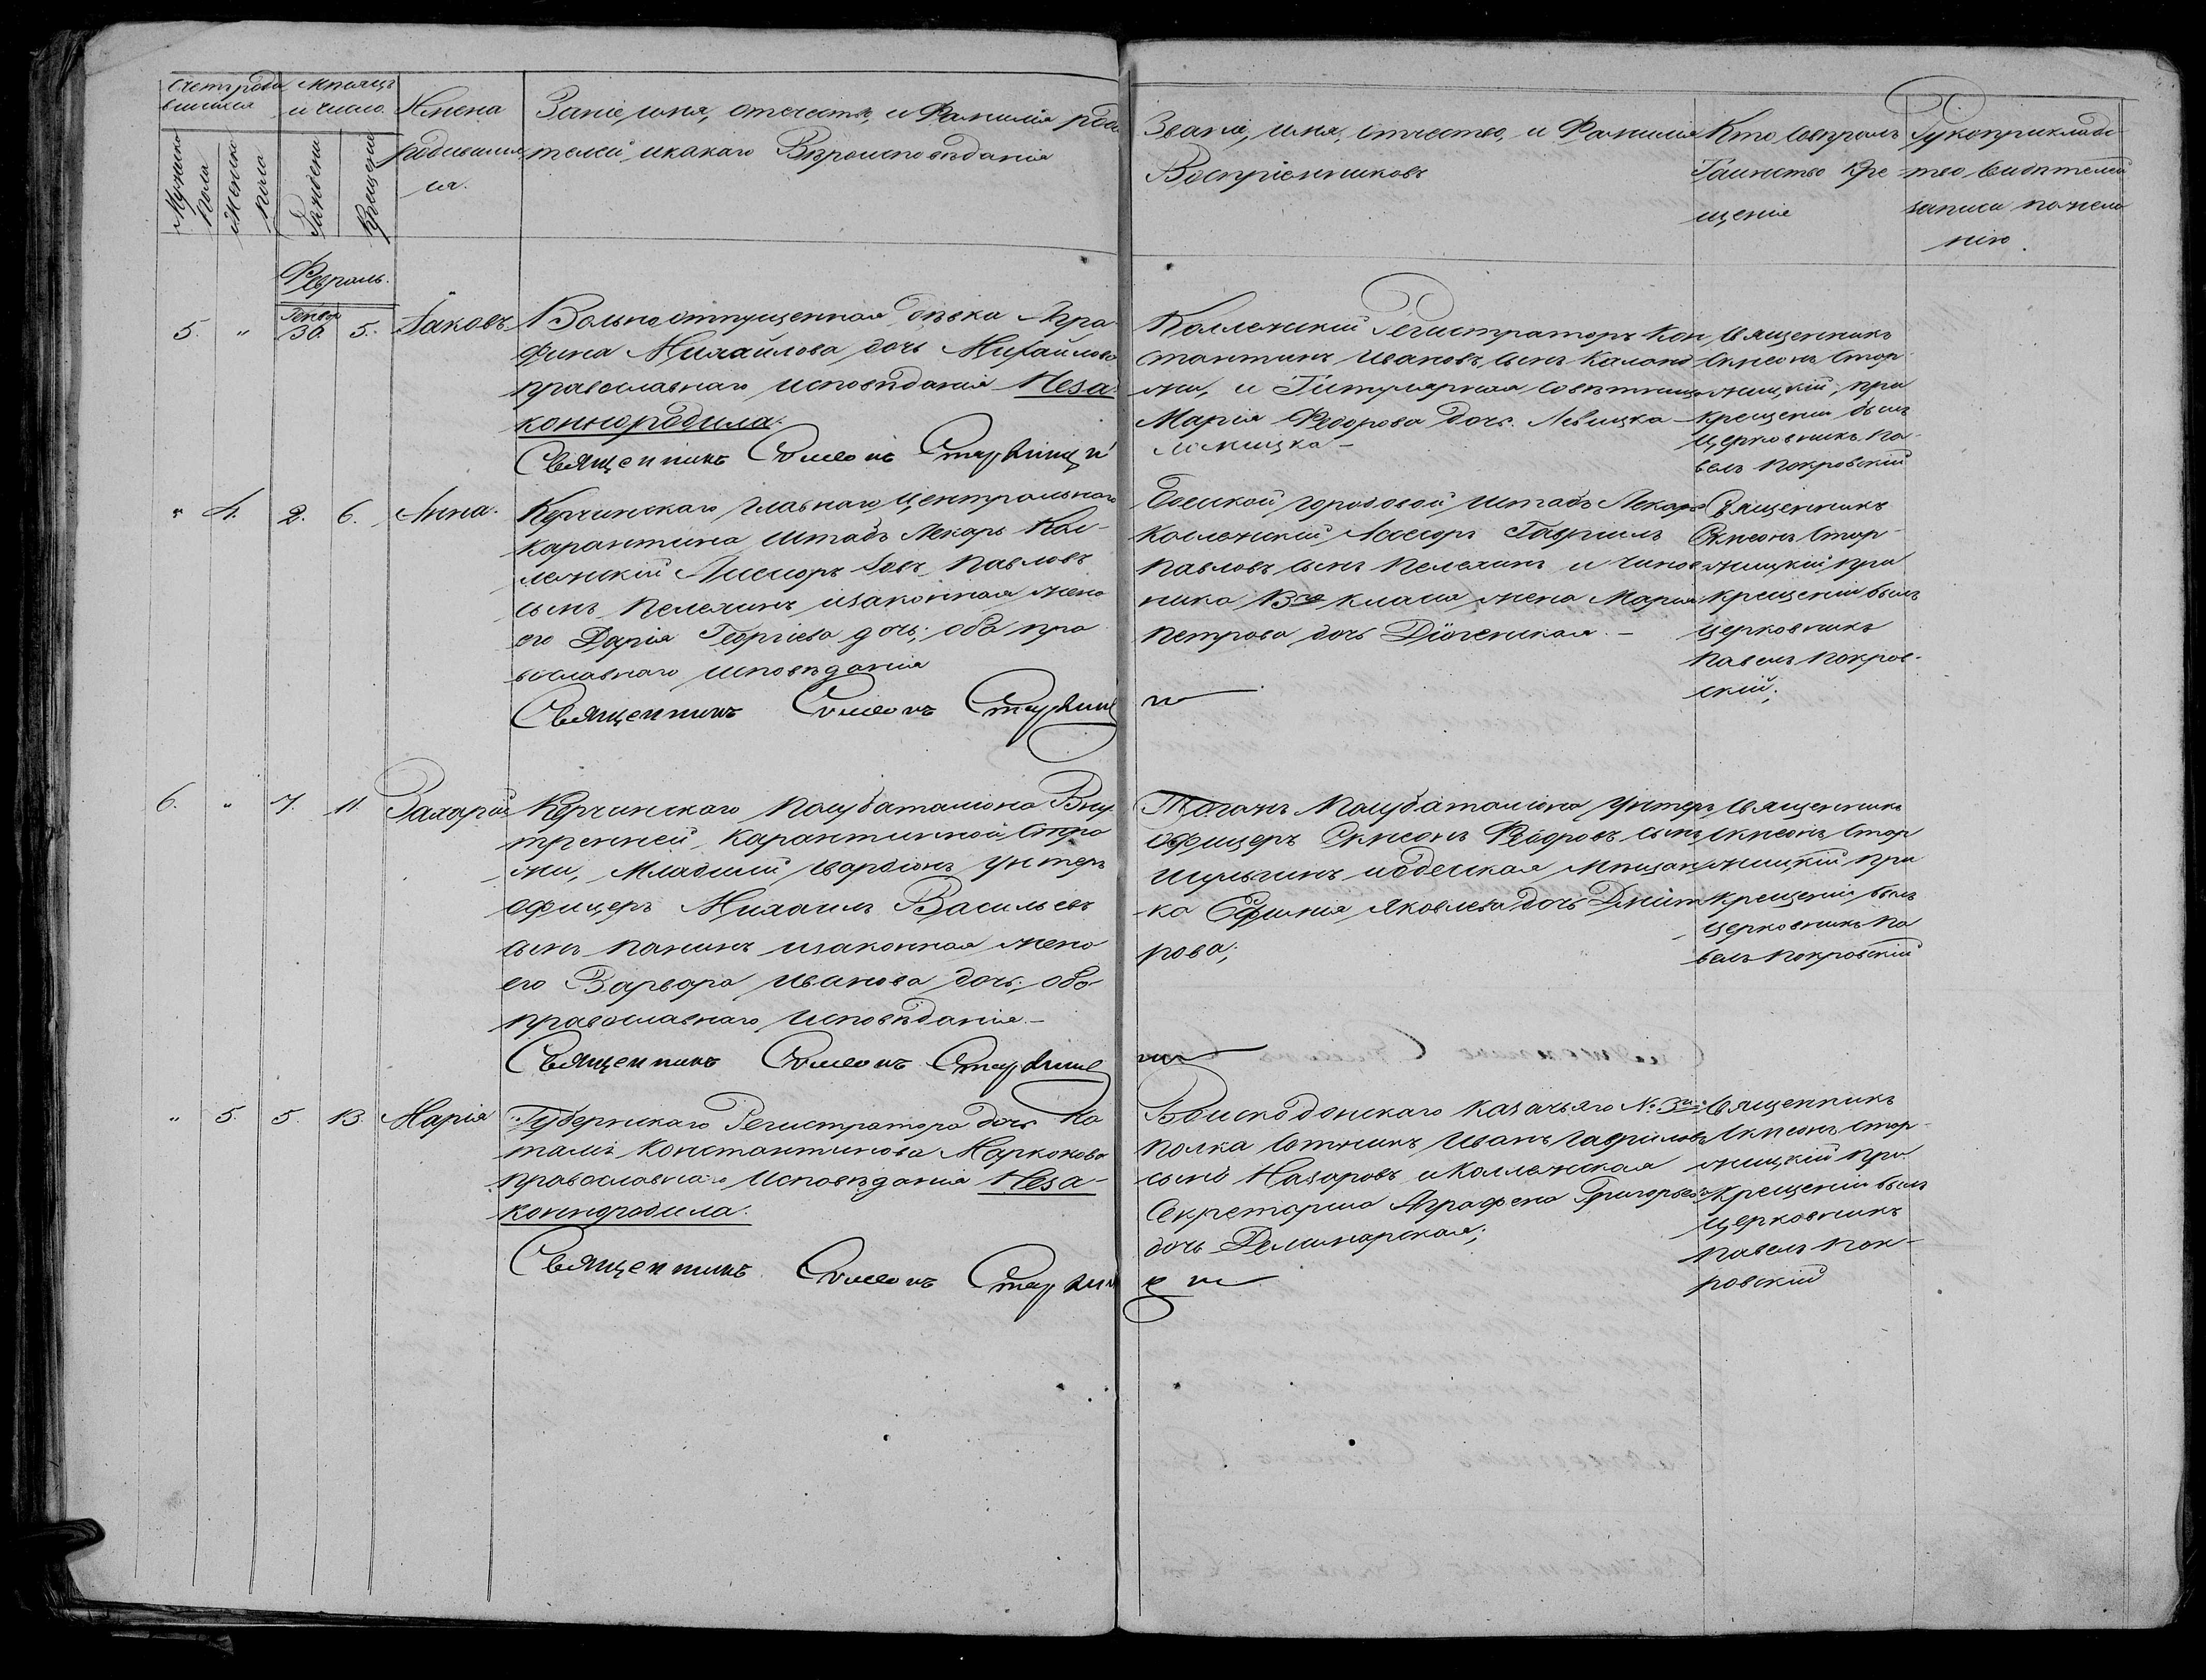 Счетъ роди
вшихся
Мѣсяцъ
и число.
Мужеска
пола
Женска
пола
Рожденія
Крещенія
Имена
родивших
ся.
Званіе, имя, отчество, и Фамилія роди
телей, и какаго Вѣроисповѣданія
Званіе, имя, отчество, и Фамилія
Воспріемниковъ
Кто совершалъ
Таинство Кре
щенія
Рукоприкладс
тво свидѣтелей
записи по жела
нію.
Февраль.
5. " Генвар 30. 5. Іаковъ
Вольноотпущенная дѣвка Агра
фина Михайлова дочь Михайлова
православнаго исповѣданія Неза
коннородила.
Священникъ Симеонъ Старжицкій
Коллежскій Регистраторъ Кон
стантинъ Ивановъ сынъ
жи, и Титулярная совѣтница
Марія Федорова дочь. Левицка
Священникъ
Симеонъ Стар
жицкій, при
крещеніи былъ
церковникъ Па
велъ Покровскій
" 4. 2. 6. Анна.
Керчинскаго Главнаго Центральнаго
Карантина Штабъ Лекарь Кол-
лежскій Ассесоръ Іовъ Павловъ
сынъ Пележинъ, и законная жена
его Дарія Георгіева дочь; оба пра
вославнаго исповѣданія
Священникъ Симеонъ Старжицкій
городовой Штабъ Лекарь
Коллежскій Ассесоръ Гавриилъ
Павловъ сынъ Пележинъ и Чинов
ника 13го класса жена Марія
Петрова дочь Діогенская. —
Священникъ
Симеонъ Стар-
жицкій, при
крещеніи былъ
церковникъ
Павелъ Покров-
скій;
6. " 7. 11. Захарій
Керчинскаго Полубаталіона Вну
тренней Карантинной Стра
жи, Младшій Гвардіонъ Унтеръ
офицеръ Михаилъ Васильевъ
сынъ Панинъ и законная жена
его Варвара Иванова дочь; оба
православнаго исповѣданія. —
Священникъ Симеонъ Старжицкій
Тогожъ Полубаталіона Унтеръ
Офицеръ Симеонъ Федоровъ сынъ
Шульгинъ и одеская Мѣщан
ка Ефимія Яковлева дочь Димит
рова;
Священникъ
Симеонъ Стар
жицкій, при
крещеніи былъ
церковникъ Па
велъ Покровскій
" 5. 5. 13. Марія
Губернскаго Регистратора дочь На
талія Константинова Маркокова
православнаго Исповѣданія Неза-
коннородила.
Священникъ Симеонъ Старжицкій
Войска донскаго казачьяго №: 3го
Полка Сотникъ Иванъ Гавриловъ
сынъ Назаровъ и Коллежская
Секретарша Аграфена Григорьева
дочь
Священникъ
Симеонъ Стар-
жицкій при
крещеніи былъ
церковникъ
Павелъ Пок-
ровскій